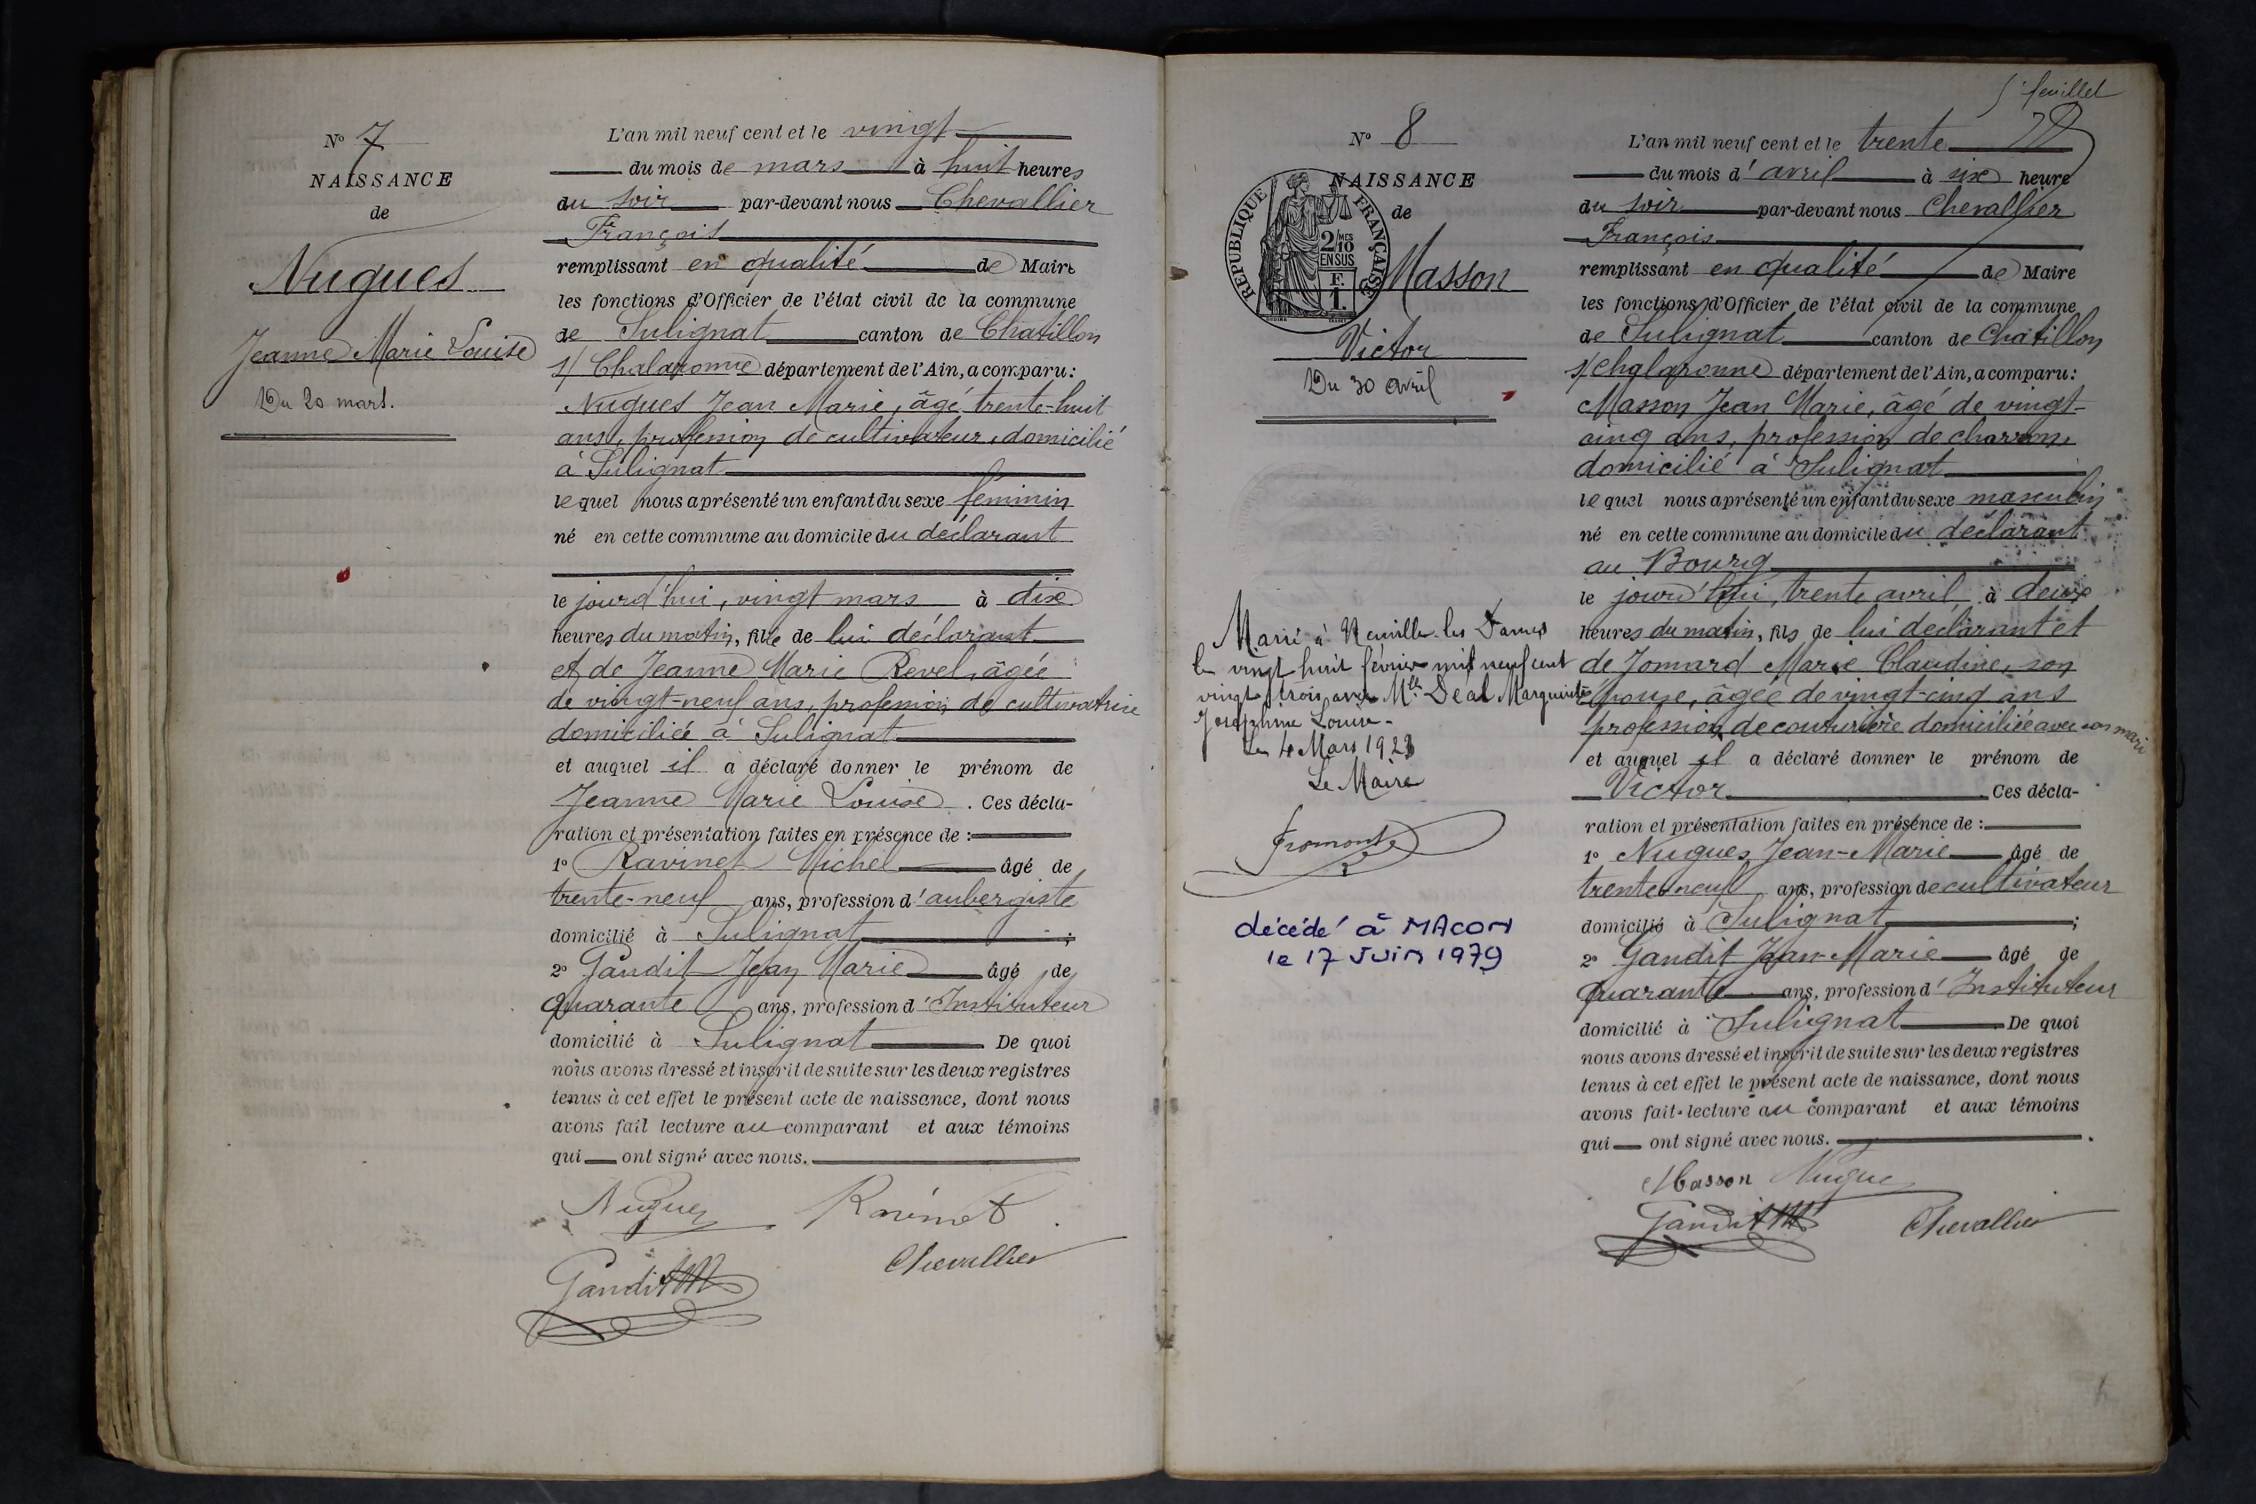 N° 7
NAISSANCE
de
Nugues
Jeanne Marie Louise
Du 20 mars.
L'an mil neuf cent et le vingt
du mois de mars à huit heures
du soir par-devant nous Chevallier
François
remplissant en qualité de Maire
les fonctions d'Officier de l'état civil de la commune
de Sulignat canton de Chatillon
s/ Chalaronne département de l'Ain, a comparu:
Nugues Jean Marie, âgé trente-huit
ans, profession de cultivateur, domicilié
à Sulignat
lequel nous a présenté un enfant du sexe féminin
né en cette commune au domicile du déclarant
le jourd'hui, vingt mars à dix
heures du matin, fille de lui déclarant
et de Jeanne Marie Revel, âgée
de vingt-neuf ans, profession de cultivatrice
domiciliée à Sulignat
et auquel il a déclaré donner le prénom de
Jeanne Marie Louise. Ces décla-
ration et présentation faites en présence de :
1° Ravinet Michel âgé de
trente-neuf ans, profession d'aubergiste
domicilié à Sulignat ;
2° Gandit Jean Marie âgé de
quarante ans, profession d'Instituteur
domicilié à Sulignat De quoi
nous avons dressé et inscrit de suite sur les deux registres
tenus à cet effet le présent acte de naissance, dont nous
avons fait lecture au comparant et aux témoins
qui ont signé avec nous.
Nugues Ravinet
Gandit JM Chevallier
5e feuillet
N° 8
NAISSANCE
de
RÉPUBLIQUE FRANÇAISE
2/10 MES
EN SUS
F.
1.
Masson
Victor
Du 30 avril
Marié à Neuville-les-Dames
le vingt huit février mil neuf cent
vingt trois avec Mlle Déal Marguerite
Joséphine Louise.
Le 4 Mars 1923
Le Maire
Fromont
décédé à MAcon
le 17 Juin 1979
L'an mil neuf cent et le trente
du mois d'avril à six heure
du soir par-devant nous Chevallier
François
remplissant en qualité de Maire
les fonctions d'Officier de l'état civil de la commune
de Sulignat canton de Chatillon
s/ Chalaronne département de l'Ain, a comparu:
Masson Jean Marie, âgé de vingt-
cinq ans, profession de charron,
domicilié à Sulignat
lequel nous a présenté un enfant du sexe masculin
né en cette commune au domicile du déclarant
au Bourg
le jourd'hui, trente avril, à deux
heures du matin, fils de lui déclarant et
de Jomard Marie Claudine, son
épouse, âgée de vingt-cinq ans
profession de couturière domiciliée avec son mari
et auquel il a déclaré donner le prénom de
Victor Ces décla-
ration et présentation faites en présence de :
1° Nugues Jean-Marie âgé de
trente-neuf ans, profession de cultivateur
domicilié à Sulignat ;
2° Gandit Jean-Marie âgé de
quarante ans, profession d'Instituteur
domicilié à Sulignat De quoi
nous avons dressé et inscrit de suite sur les deux registres
tenus à cet effet le présent acte de naissance, dont nous
avons fait lecture au comparant et aux témoins
qui ont signé avec nous.
Masson Nugue
Gandit JM Chevallier